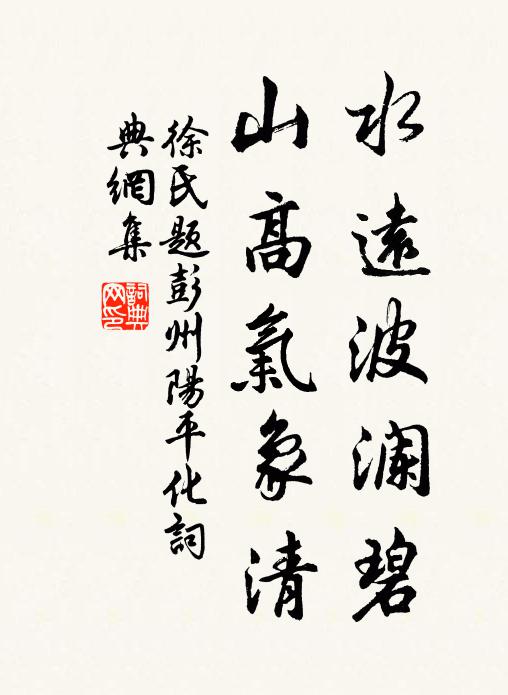 水遠波瀾碧
山高氣象清
徐氏題彭州陽平化詞
典網集
詞典
网印